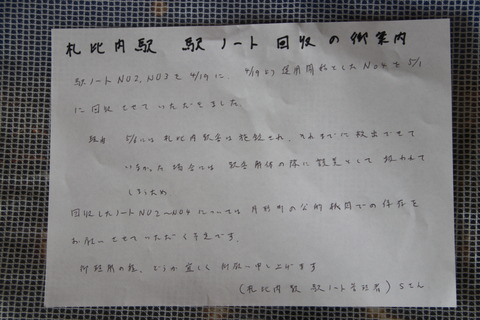 札比内駅 駅ノート 回収の御案内
駅ノート NO2、NO3を 4/19に、4/19より運用開始をした NO4を 5/1
に回収させていただきました。
理由 5/6には札比内駅舎は施錠され、それまでに救出できて
いなかった場合には 駅舎解体の際に殺処として 扱われて
しまうため
回収したノートNO2〜NO4については月形町の公的機関での保存を
お願いさせていただく予定です。
御理解の程、どうか宜しく御願い申し上げます
(札比内駅 駅ノート管理者) Sさん